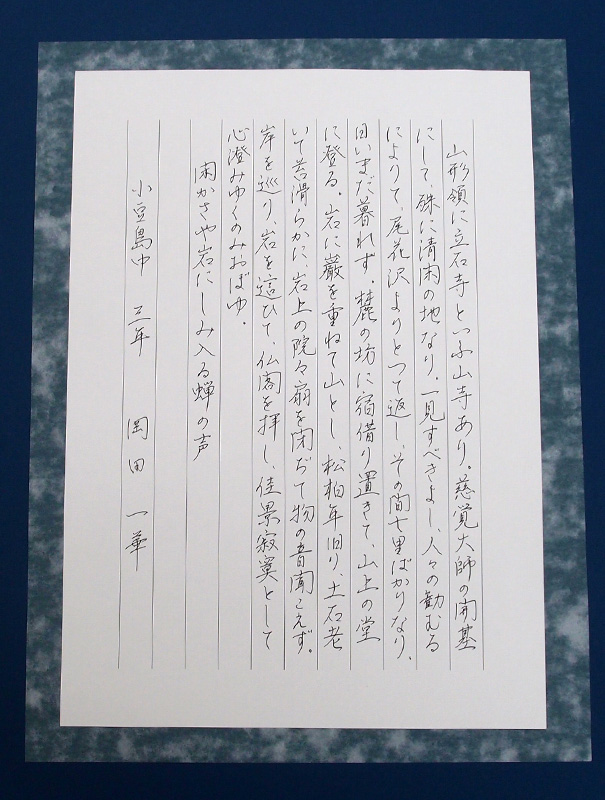 山形領に立石寺といふ山寺あり。慈覚大師の開基
にして、殊に清閑の地なり。一見すべきよし、人々の勧むる
によりて、尾花沢よりとつて返し、その間七里ばかりなり。
日いまだ暮れず。麓の坊に宿借り置きて、山上の堂
に登る。岩に巌を重ねて山とし、松柏年旧り、土石老
いて苔滑らかに、岩上の院々扇を閉ぢて物の音聞こえず。
岸を巡り、岩を這ひて、仏閣を拝し、佳景寂寞として
心澄みゆくのみおぼゆ。
閑かさや岩にしみ入る蝉の声
小豆島中 三年 岡田 一華